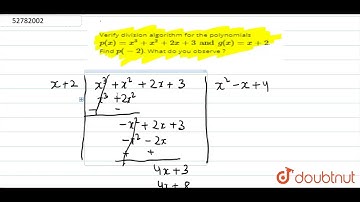 52782002
Verify division algorithm for the polynomials
p(x) = x³ + x² + 2x + 3 and g(x) = x + 2
Find p(−2). What do you observe ?
x+2 | x³ + x² + 2x + 3 | x² − x + 4
x³ + 2x²
− −
−x² + 2x + 3
−x² − 2x
+ +
4x + 3
4x + 8
doubtnut